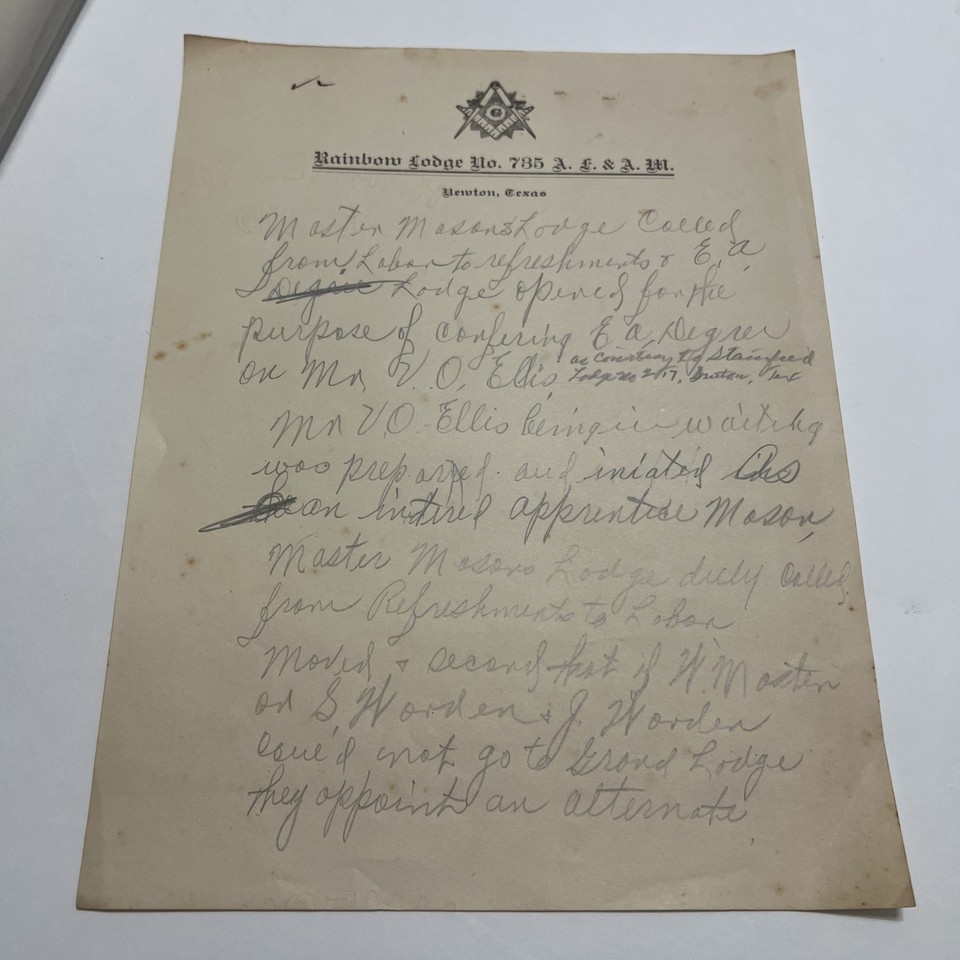 G
Rainbow Lodge No. 735 A. F. & A. M.
Newton, Texas
Master Masons Lodge Called
from Labor to refreshments & E, a,
Degree Lodge opened for the
purpose of confering E a, Degree
on Mr, V. O, Ellis, as Courtesy to
Lodge no 217, Tex
Mr V.O. Ellis being in waiting
was prepared and iniated As
an intired apprentice Mason,
Master Masons Lodge duly Called
from Refreshments to Labor
Moved & second that if W. Master
or S, Warden & J. Warden
could not go to Grand Lodge
they appoint an alternate